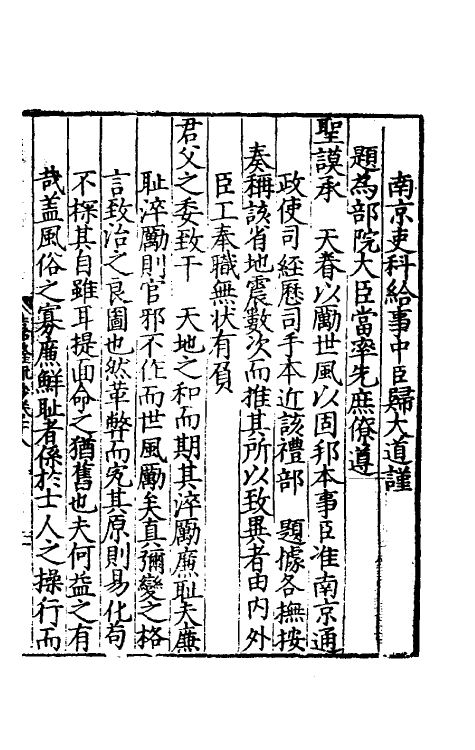 南京吏科給事中臣歸大道謹
題為部院大臣當率先庶僚遵
聖謨承　天眷以勵世風以固邦本事臣准南京通
政使司經歷司手本近該禮部　題據各撫按
奏稱該省地震數次而推其所以致異者由內外
臣工奉職無状有負
君父之委致干　天地之和而期其淬勵廉恥夫廉
耻淬勵則官邪不作而世風勵矣真彌變之格
言致治之良圖也然革弊而究其原則易化苟
不探其自雖耳提面命之猶舊也夫何益之有
哉盖風俗之寡廉鮮耻者係於士人之操行而